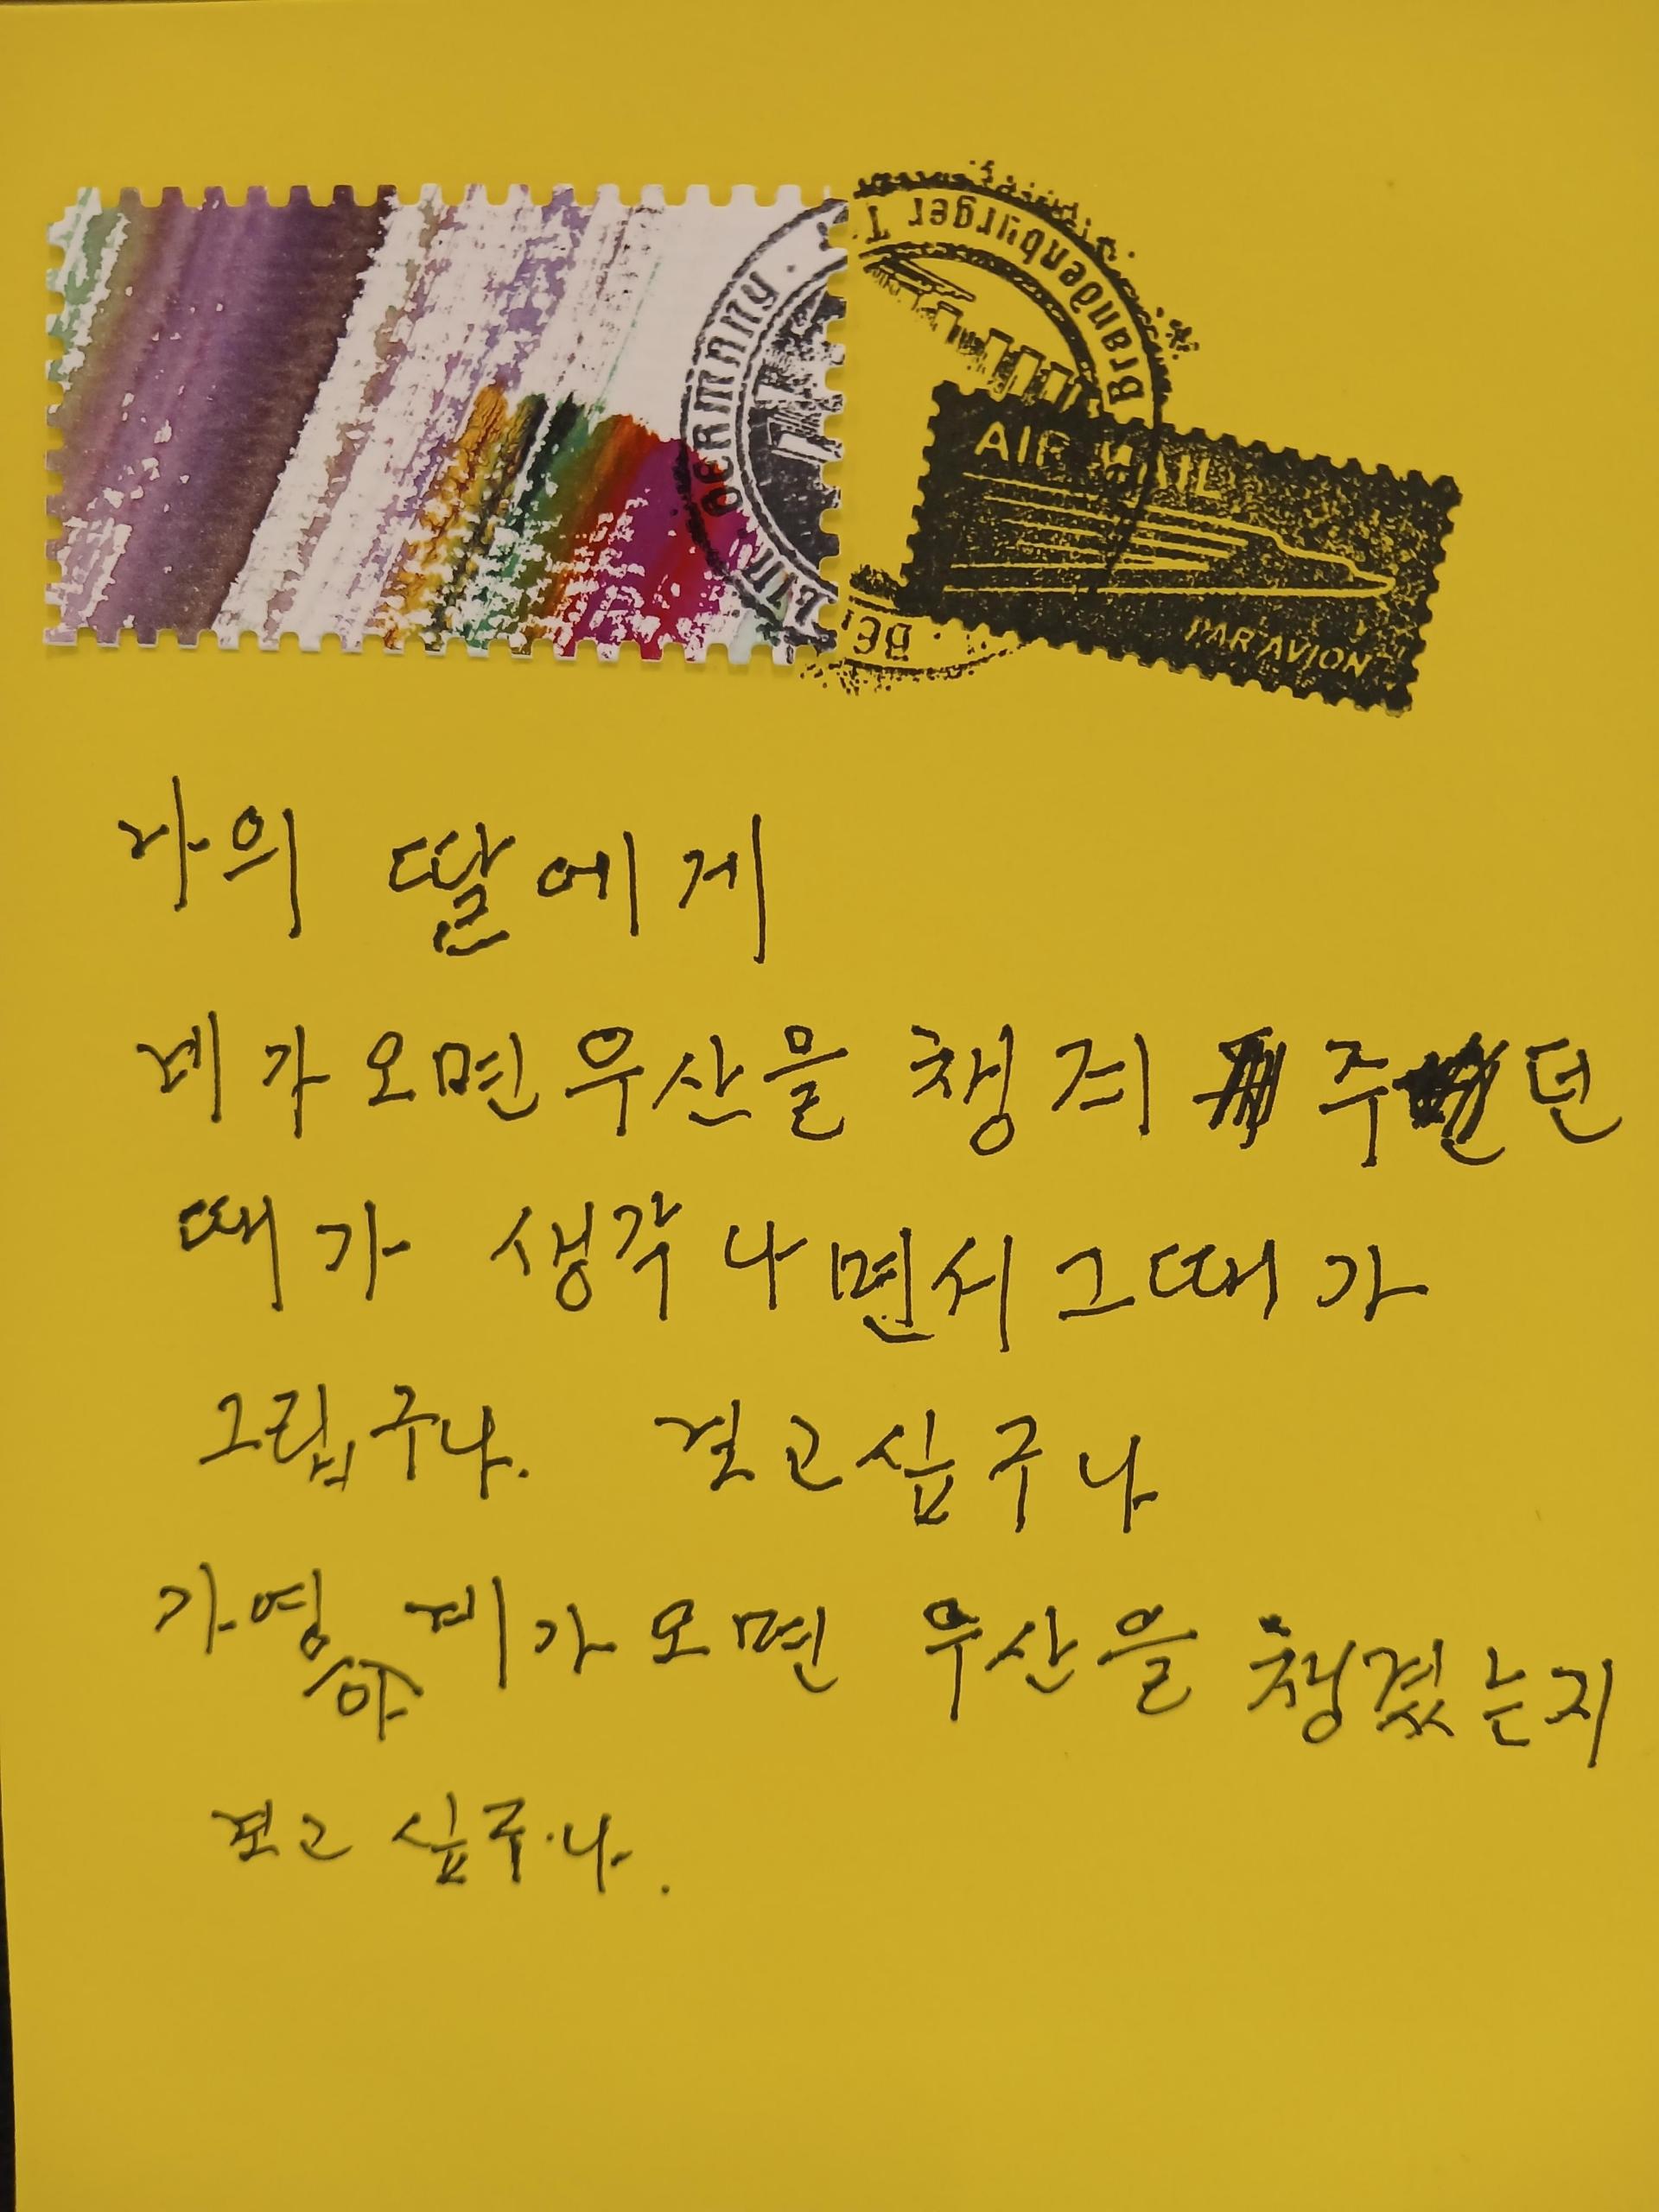 BERLIN · GERMANY · Brandenburger T
AIR MAIL
PAR AVION
나의 딸에게
비가오면 우산을 챙겨 주던
때가 생각나면서 그때가
그립구나. 보고싶구나
가영야 비가오면 우산을 챙겼는지
보고 싶구나.